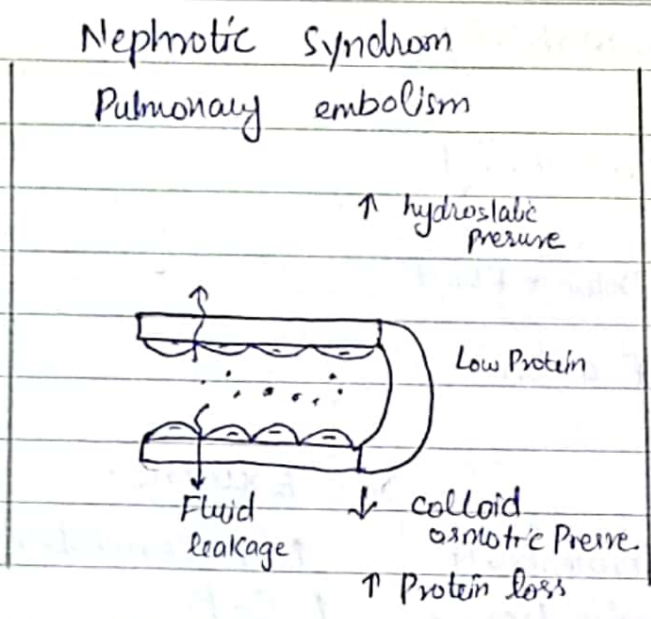 Nephrotic Syndrom
Pulmonary embolism
↑ hydrostatic
presure
Low Protein
Fluid
leakage
↓ colloid
osmotric Presre.
↑ Protein loss